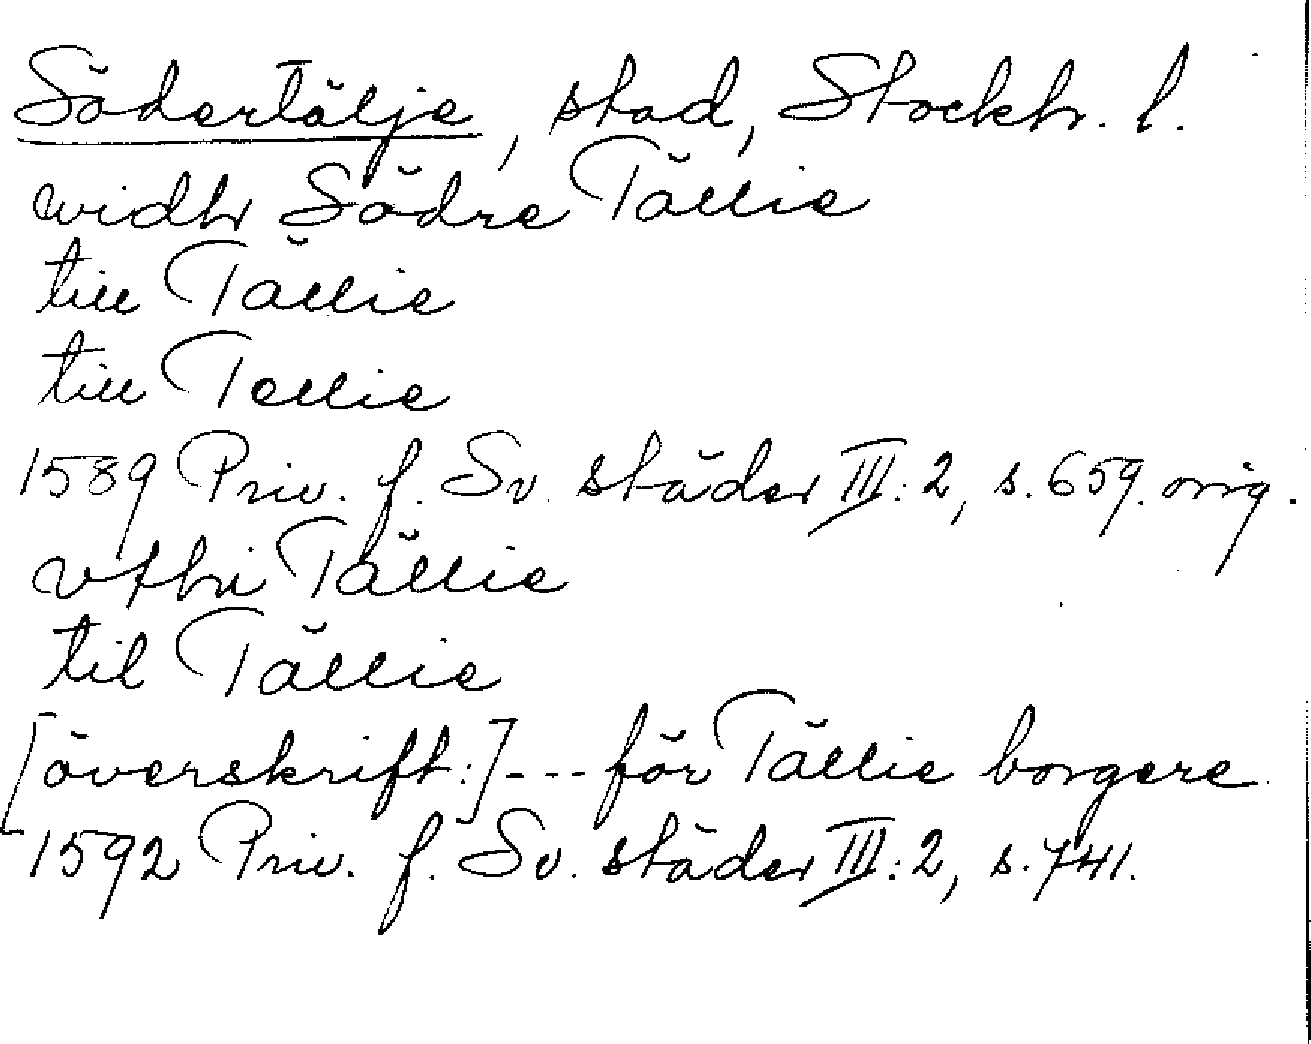 Södertälje, stad, Stockh. l.
widh Södre Tällie
till Tällie
till Tellie
1589 Priv. f. Sv. städer III:2, s. 659. orig.
vthi Tällie
til Tällie
[överskrift:]---för Tällie borgere
1592 Priv. f. Sv. städer III:2, s. 741.